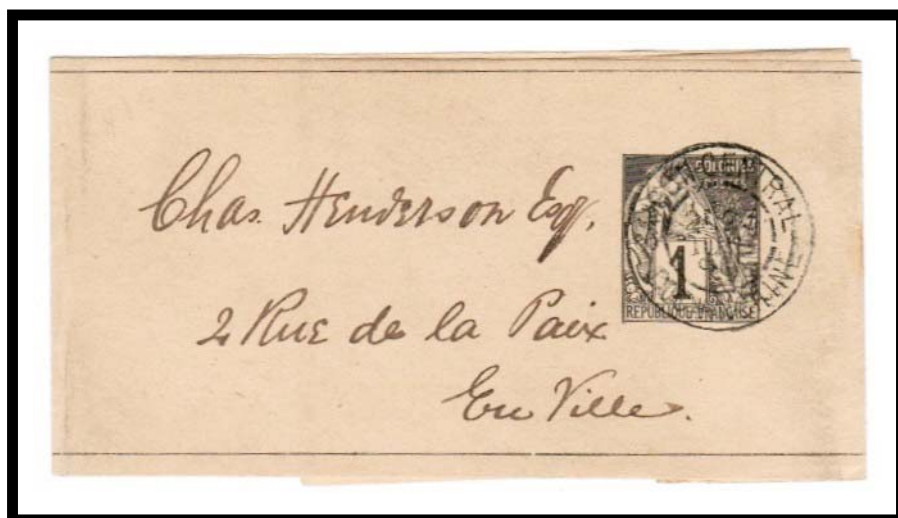 Chas. Henderson Esq.
2 Rue de la Paix
En Ville.
COLONIES
1
REPUBLIQUE FRANCAISE
CENTRAL